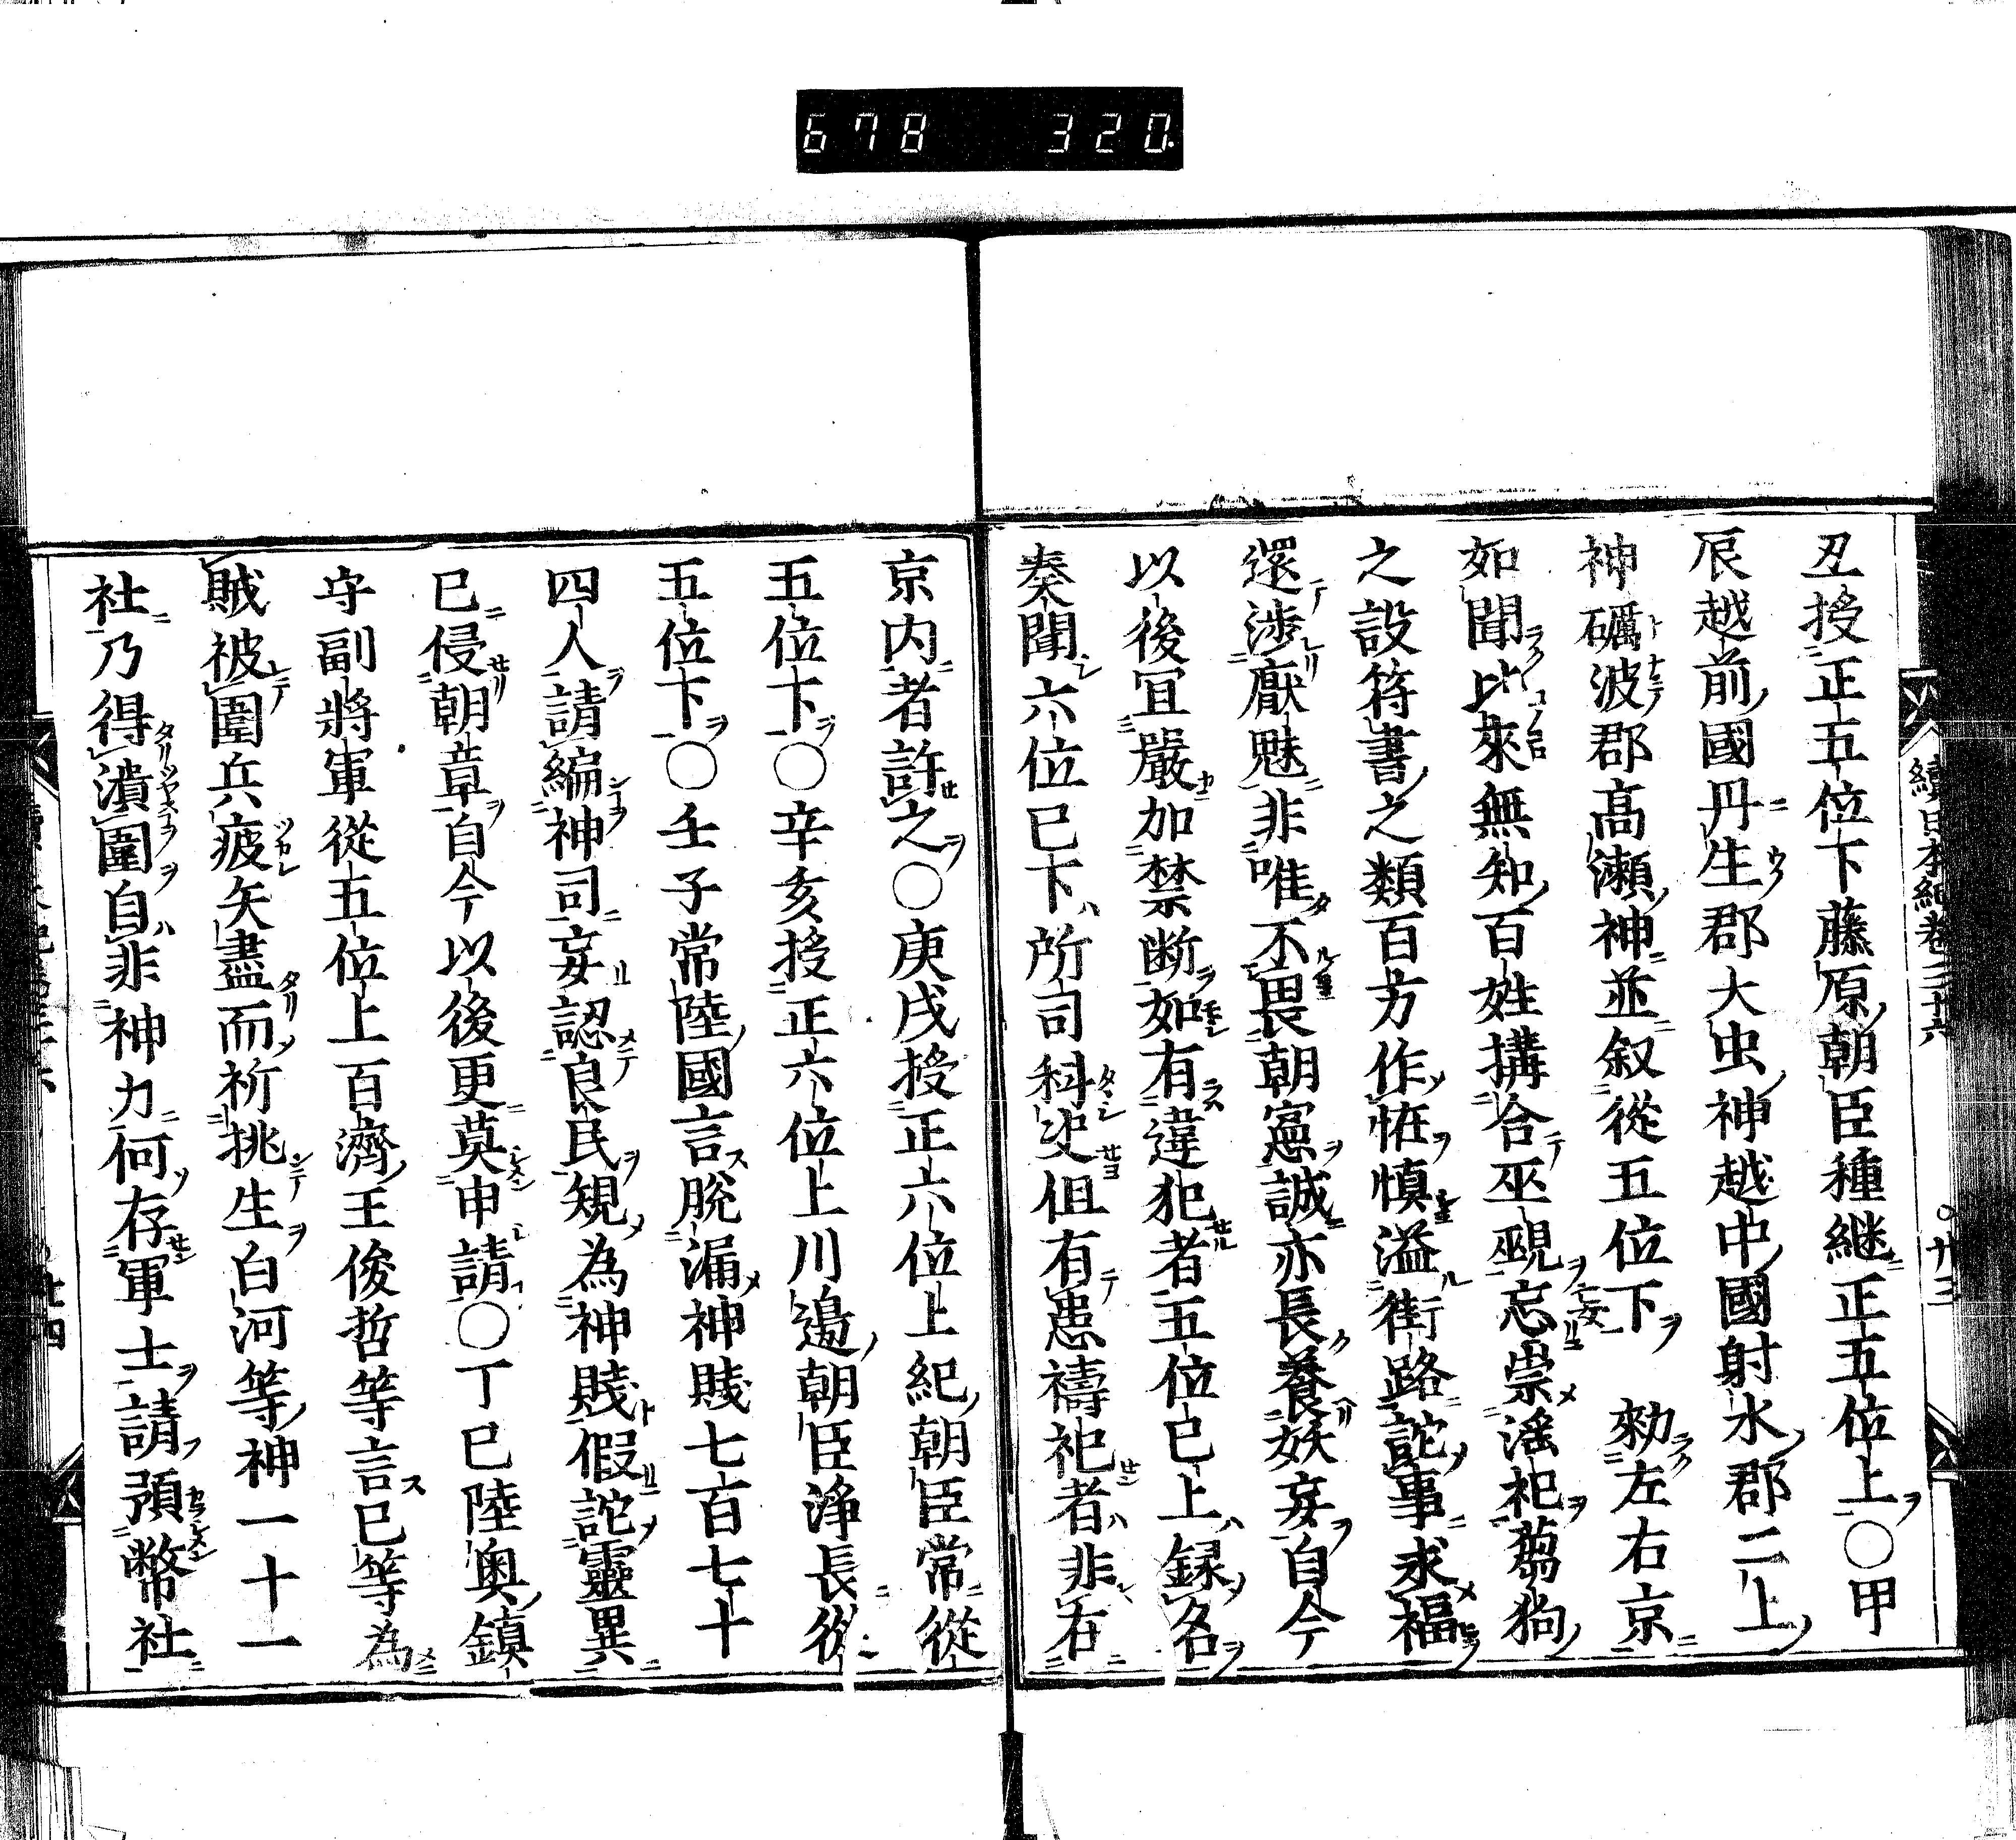 678 320
續日本紀卷三十六
廿三
丑授正五位下藤原朝臣種継正五位上○甲
辰越前國丹生郡大虫神越中國射水郡二上
神礪波郡高瀬神並叙從五位下 勑左右京
如聞比來無知百姓搆合巫覡忘崇滛祀蒭狗
之設符書之類百方作恠慎溢街路詑事求福
還涉厭魅非唯不畏朝憲誠亦長養妖妄自今
以後冝嚴加禁断如有違犯者五位已上録名
奏聞六位已下所司科决但有患禱祀者非在
京内者許之○庚戌授正六位上紀朝臣常從
五位下○辛亥授正六位上川邉朝臣浄長從
五位下○壬子常陸國言脱漏神賤七百七十
四人請編神司妄認良民規為神賤假詑靈異
已侵朝章自今以後更莫申請○丁巳陸奥鎮
守副將軍從五位上百濟王俊哲等言已等為
賊被圍兵疲矢盡而祈挑生白河等神一十一
社乃得潰圍自非神力何存軍士請預幣社
廿四